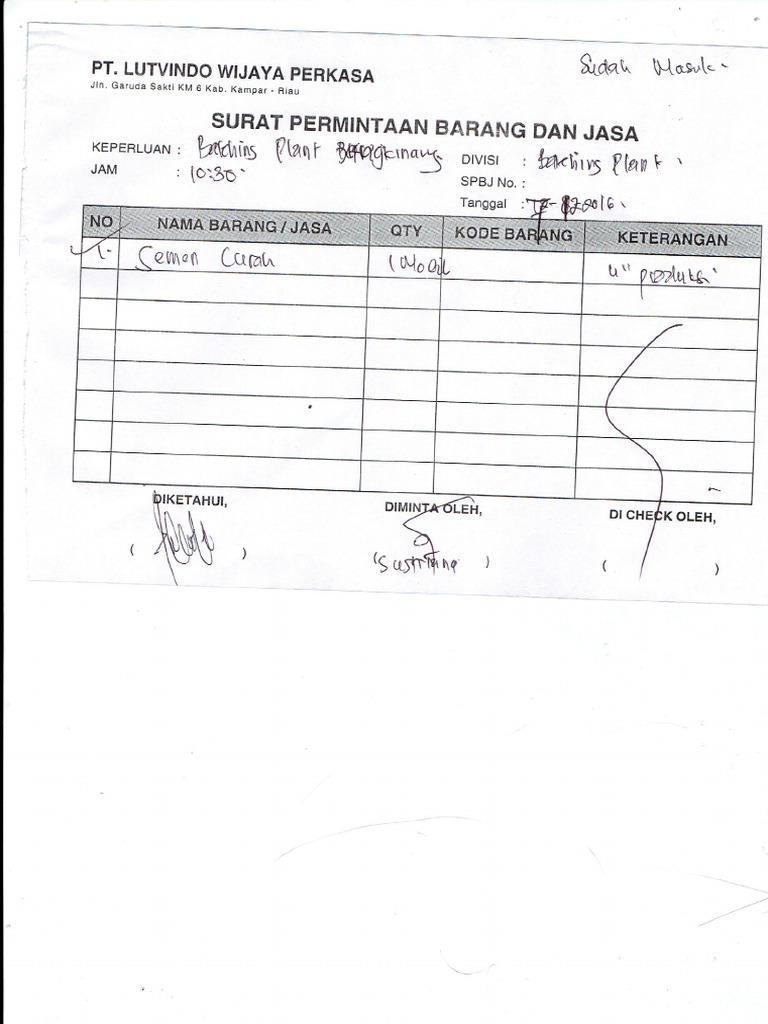 Sudah Masuk.
PT. LUTVINDO WIJAYA PERKASA
Jln. Garuda Sakti KM 6 Kab. Kampar - Riau
SURAT PERMINTAAN BARANG DAN JASA
KEPERLUAN : Batching Plant
DIVISI : Batching Plant.
JAM : 10:30
SPBJ No. :
Tanggal : 2016.
NO NAMA BARANG / JASA QTY KODE BARANG KETERANGAN
1. Semen Curah 1 Mobil u" produksi
DIKETAHUI, DIMINTA OLEH, DI CHECK OLEH,
( ) ( ) ( )